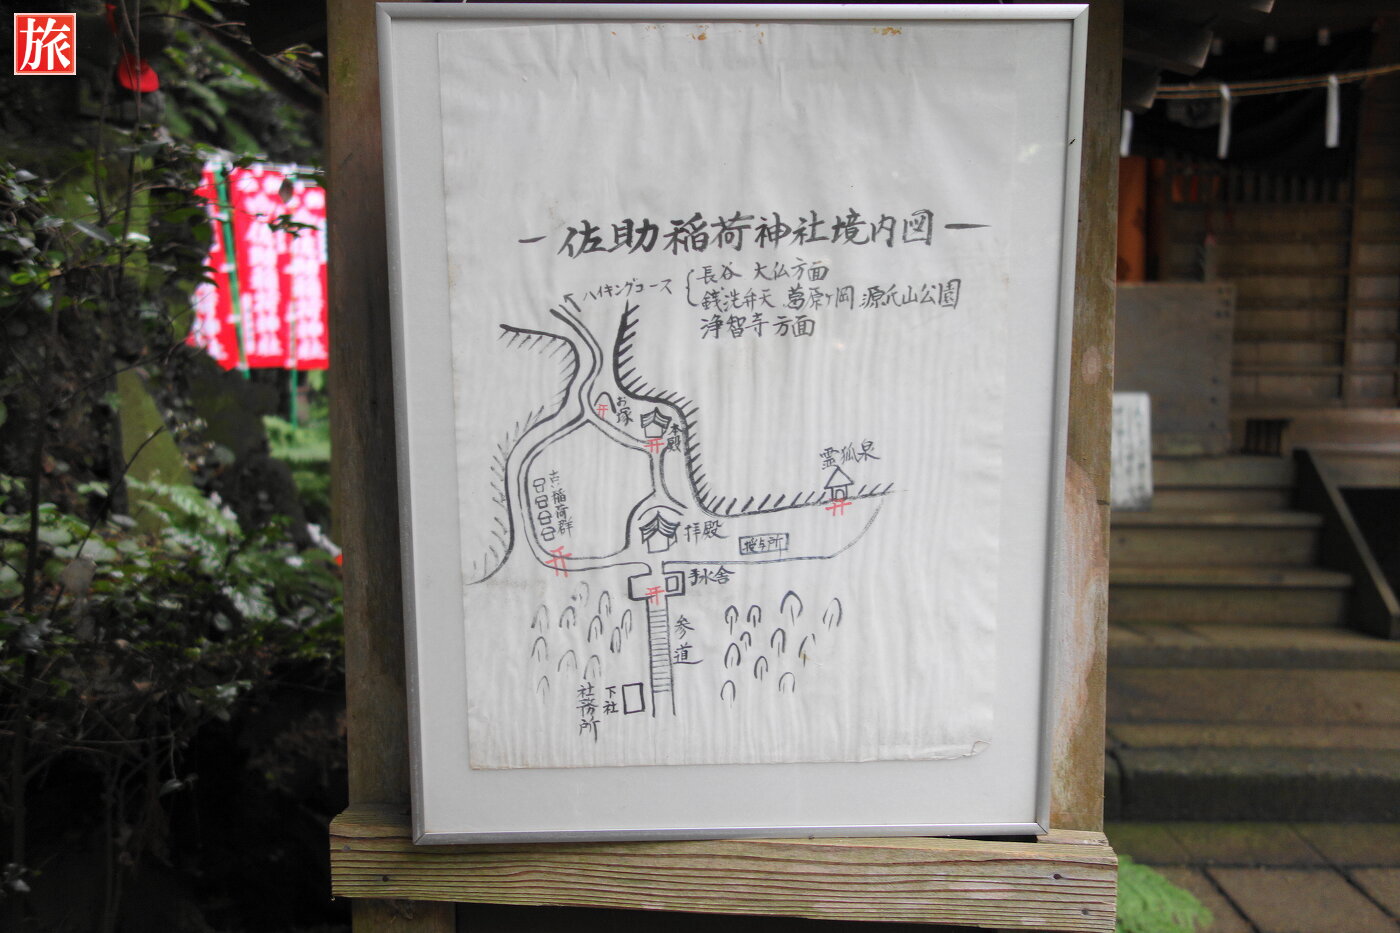 旅
一佐助稲荷神社境内図一
ハイキングコース
長谷 大仏方面
銭洗弁天 葛原ヶ岡 源氏山公園
浄智寺方面
お塚
本殿
霊狐泉
古稲荷群
拝殿
授与所
手水舎
参道
下社
社務所